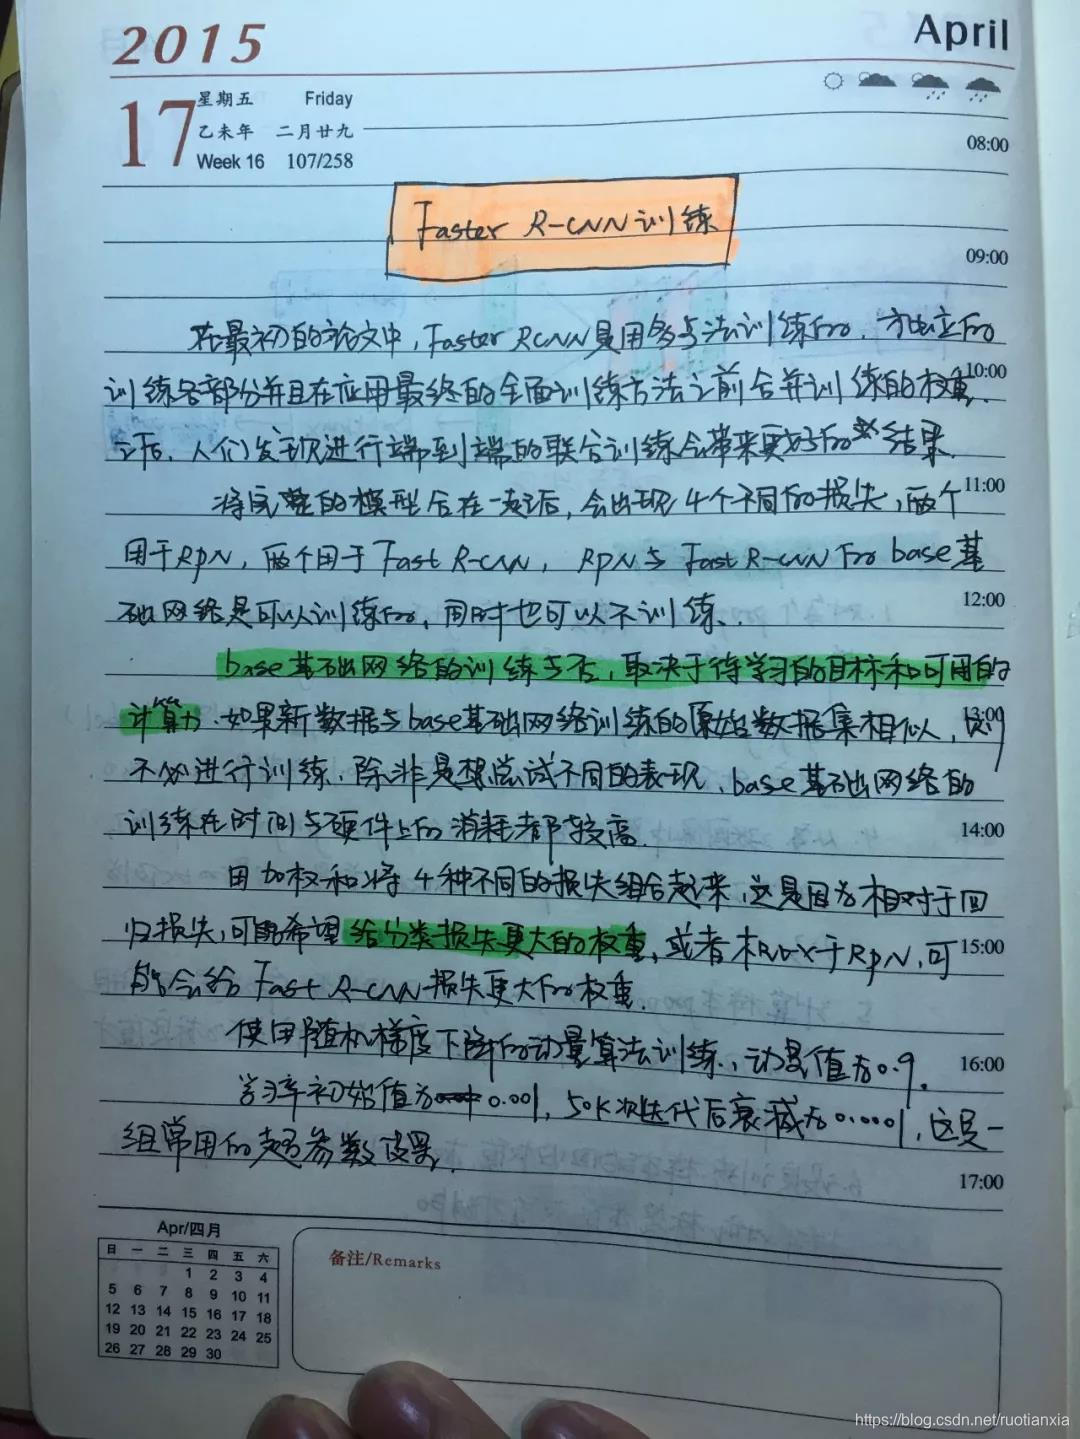 2015
April
17
星期五 Friday
乙未年 二月廿九
Week 16 107/258
08:00
Faster R-CNN训练
09:00
在最初的论文中，Faster RCNN是用多步法训练的，独立的
10:00
训练各部分并且在应用最终的全面训练方法之前合并训练的权重．
之后，人们发现进行端到端的联合训练会带来更好的结果．
11:00
将完整的模型合在一起后，会出现4个不同的损失，两个
用于RPN，两个用于Fast R-CNN，RPN与Fast R-CNN的base基
12:00
础网络是可以训练的，同时也可以不训练．
base基础网络的训练与否，取决于待学习的目标和可用的
13:00
计算力．如果新数据与base基础网络训练的原始数据集相似，则
不必进行训练．除非是想尝试不同的表现．base基础网络的
14:00
训练在时间与硬件上的消耗都较高．
用加权和将4种不同的损失组合起来，这是因为相对于回
15:00
归损失，可能希望给分类损失更大的权重，或者相对于RPN，可
能会给Fast R-CNN损失更大的权重．
使用随机梯度下降的动量算法训练，动量值为0.9．
16:00
学习率初始值为 0.001，50K次迭代后衰减为0.0001，这是一
组常用的超参数设置．
17:00
Apr/四月
日 一 二 三 四 五 六
1 2 3 4
5 6 7 8 9 10 11
12 13 14 15 16 17 18
19 20 21 22 23 24 25
26 27 28 29 30
备注/Remarks
https://blog.csdn.net/ruotianxia